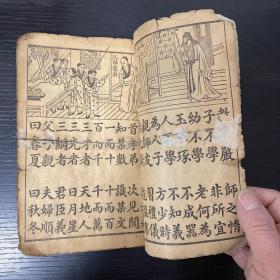 教不嚴 師之惰
子不學 非所宜
幼不學 老何為
玉不琢 不成器
人不學 不知義
為人子 方少時
親師友 習禮儀
首孝弟 次見聞
知某數 識某文
一而十 十而百
百而千 千而萬
三才者 天地人
三光者 日月星
三綱者 君臣義
父子親 夫婦順
曰春夏 曰秋冬